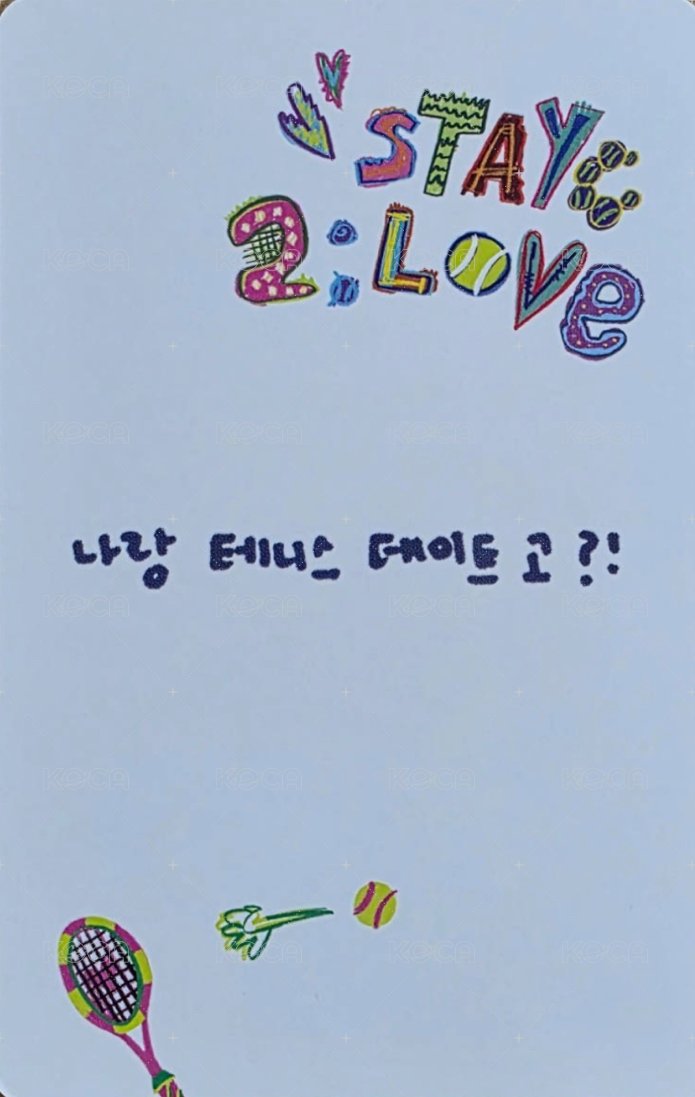 STAY
2:LOVe
나랑 테니스 데이트 고?!